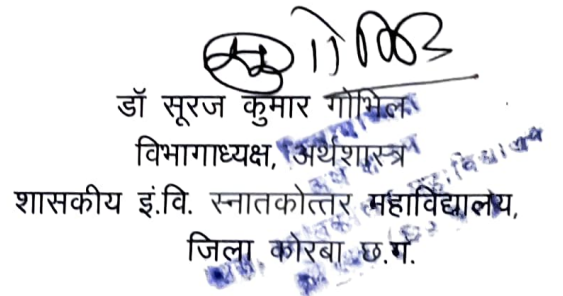 डॉ सूरज कुमार गोभिल
विभागाध्यक्ष, अर्थशास्त्र
शासकीय इं.वि. स्नातकोत्तर महाविद्यालय,
जिला कोरबा छ.ग.